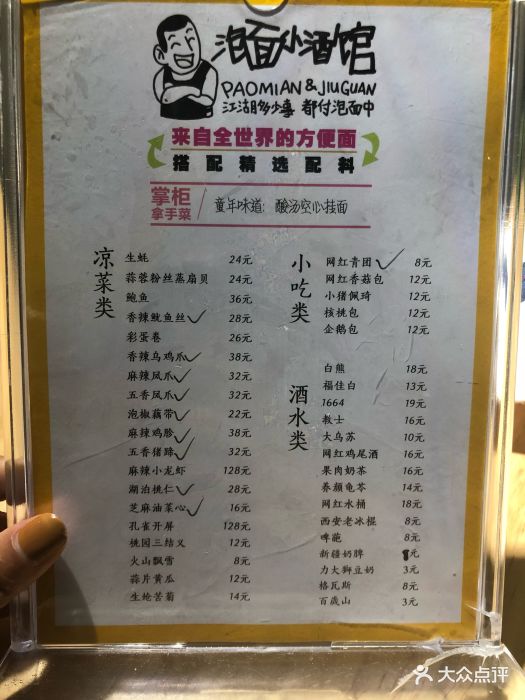 泡面小酒馆
PAOMIAN & JIUGUAN
江湖多少事 都付泡面中
来自全世界的方便面
搭配精选配料
掌柜拿手菜
童年味道：酸汤空心挂面
凉菜类
生蚝 24元
蒜蓉粉丝蒸扇贝 24元
鲍鱼 36元
香辣鱿鱼丝 28元
彩蛋卷 26元
香辣乌鸡爪 38元
麻辣凤爪 32元
五香凤爪 32元
泡椒藕带 22元
麻辣鸡胗 38元
五香猪蹄 32元
麻辣小龙虾 128元
湖泊桃仁 28元
芝麻油菜心 16元
孔雀开屏 128元
桃园三结义 12元
火山飘雪 8元
蒜片黄瓜 12元
生呛苦菊 14元
小吃类
网红青团 8元
网红香菇包 12元
小猪佩琦 12元
核桃包 12元
企鹅包 12元
酒水类
白熊 18元
福佳白 13元
1664 19元
教士 16元
大乌苏 10元
网红鸡尾酒 16元
果肉奶茶 16元
养颜龟苓 14元
网红水桶 18元
西安老冰棍 8元
啤葩 8元
新疆奶脾 元
力大狮豆奶 3元
格瓦斯 8元
百岁山 3元
大众点评